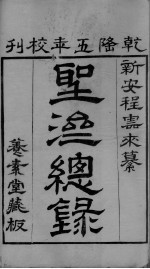 乾隆五年校刊
新安程雲來纂
聖濟總錄
養素堂藏板